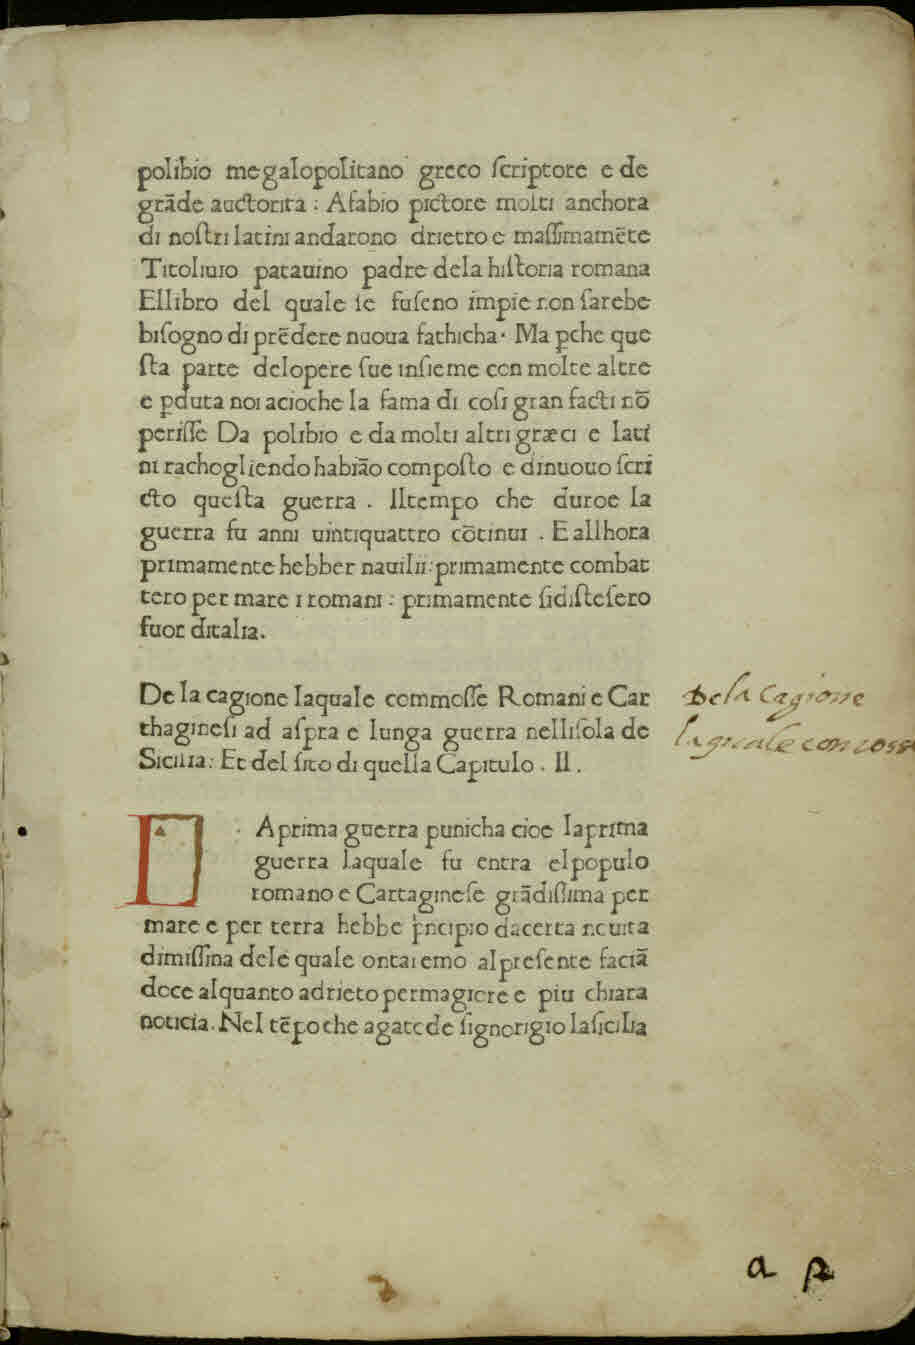 polibio megalopolitano greco ſcriptore e de
grāde auctorita : Afabio pictore molti anchora
di noſtri latini andarono drietro e maſſimamēte
Titoliuio patauino padre dela hiſtoria romana
Ellibro del quale ſe fuſeno impie non ſarebe
biſogno di prēdere nuoua fathicha. Ma ꝑche que
ſta parte delopere ſue inſieme con molte altre
e ꝑduta noi acioche la fama di coſi gran facti nō
periſſe Da polibio e da molti altri græci e lati
ni rachogliendo habiāo compoſto e dinuouo ſcri
cto queſta guerra . Iltempo che duroe la
guerra fu anni uintiquattro cōtinui . E allhora
primamente hebber nauilii: primamente combat
tero per mare i romani : primamente ſidiſteſero
fuor ditalia.
De la cagione laquale commoſſe Romani e Car
thagineſi ad aſpra e lunga guerra nelliſola de
Sicilia: Et del ſito di quella Capitulo . II .
Dela Cagione
laquale comoss
LA prima guerra punicha cioe laprima
guerra laquale fu entra elpopulo
romano e Cartagineſe grādiſſima per
mare e per terra hebbe pͥncipio dacerta neuita
dimiſſina dele quale ontaremo alpreſente faciā
doce alquanto adrieto permagiore e piu chiara
noticia. Nel tēpo che agatede ſignorigio laſicilia
a 2